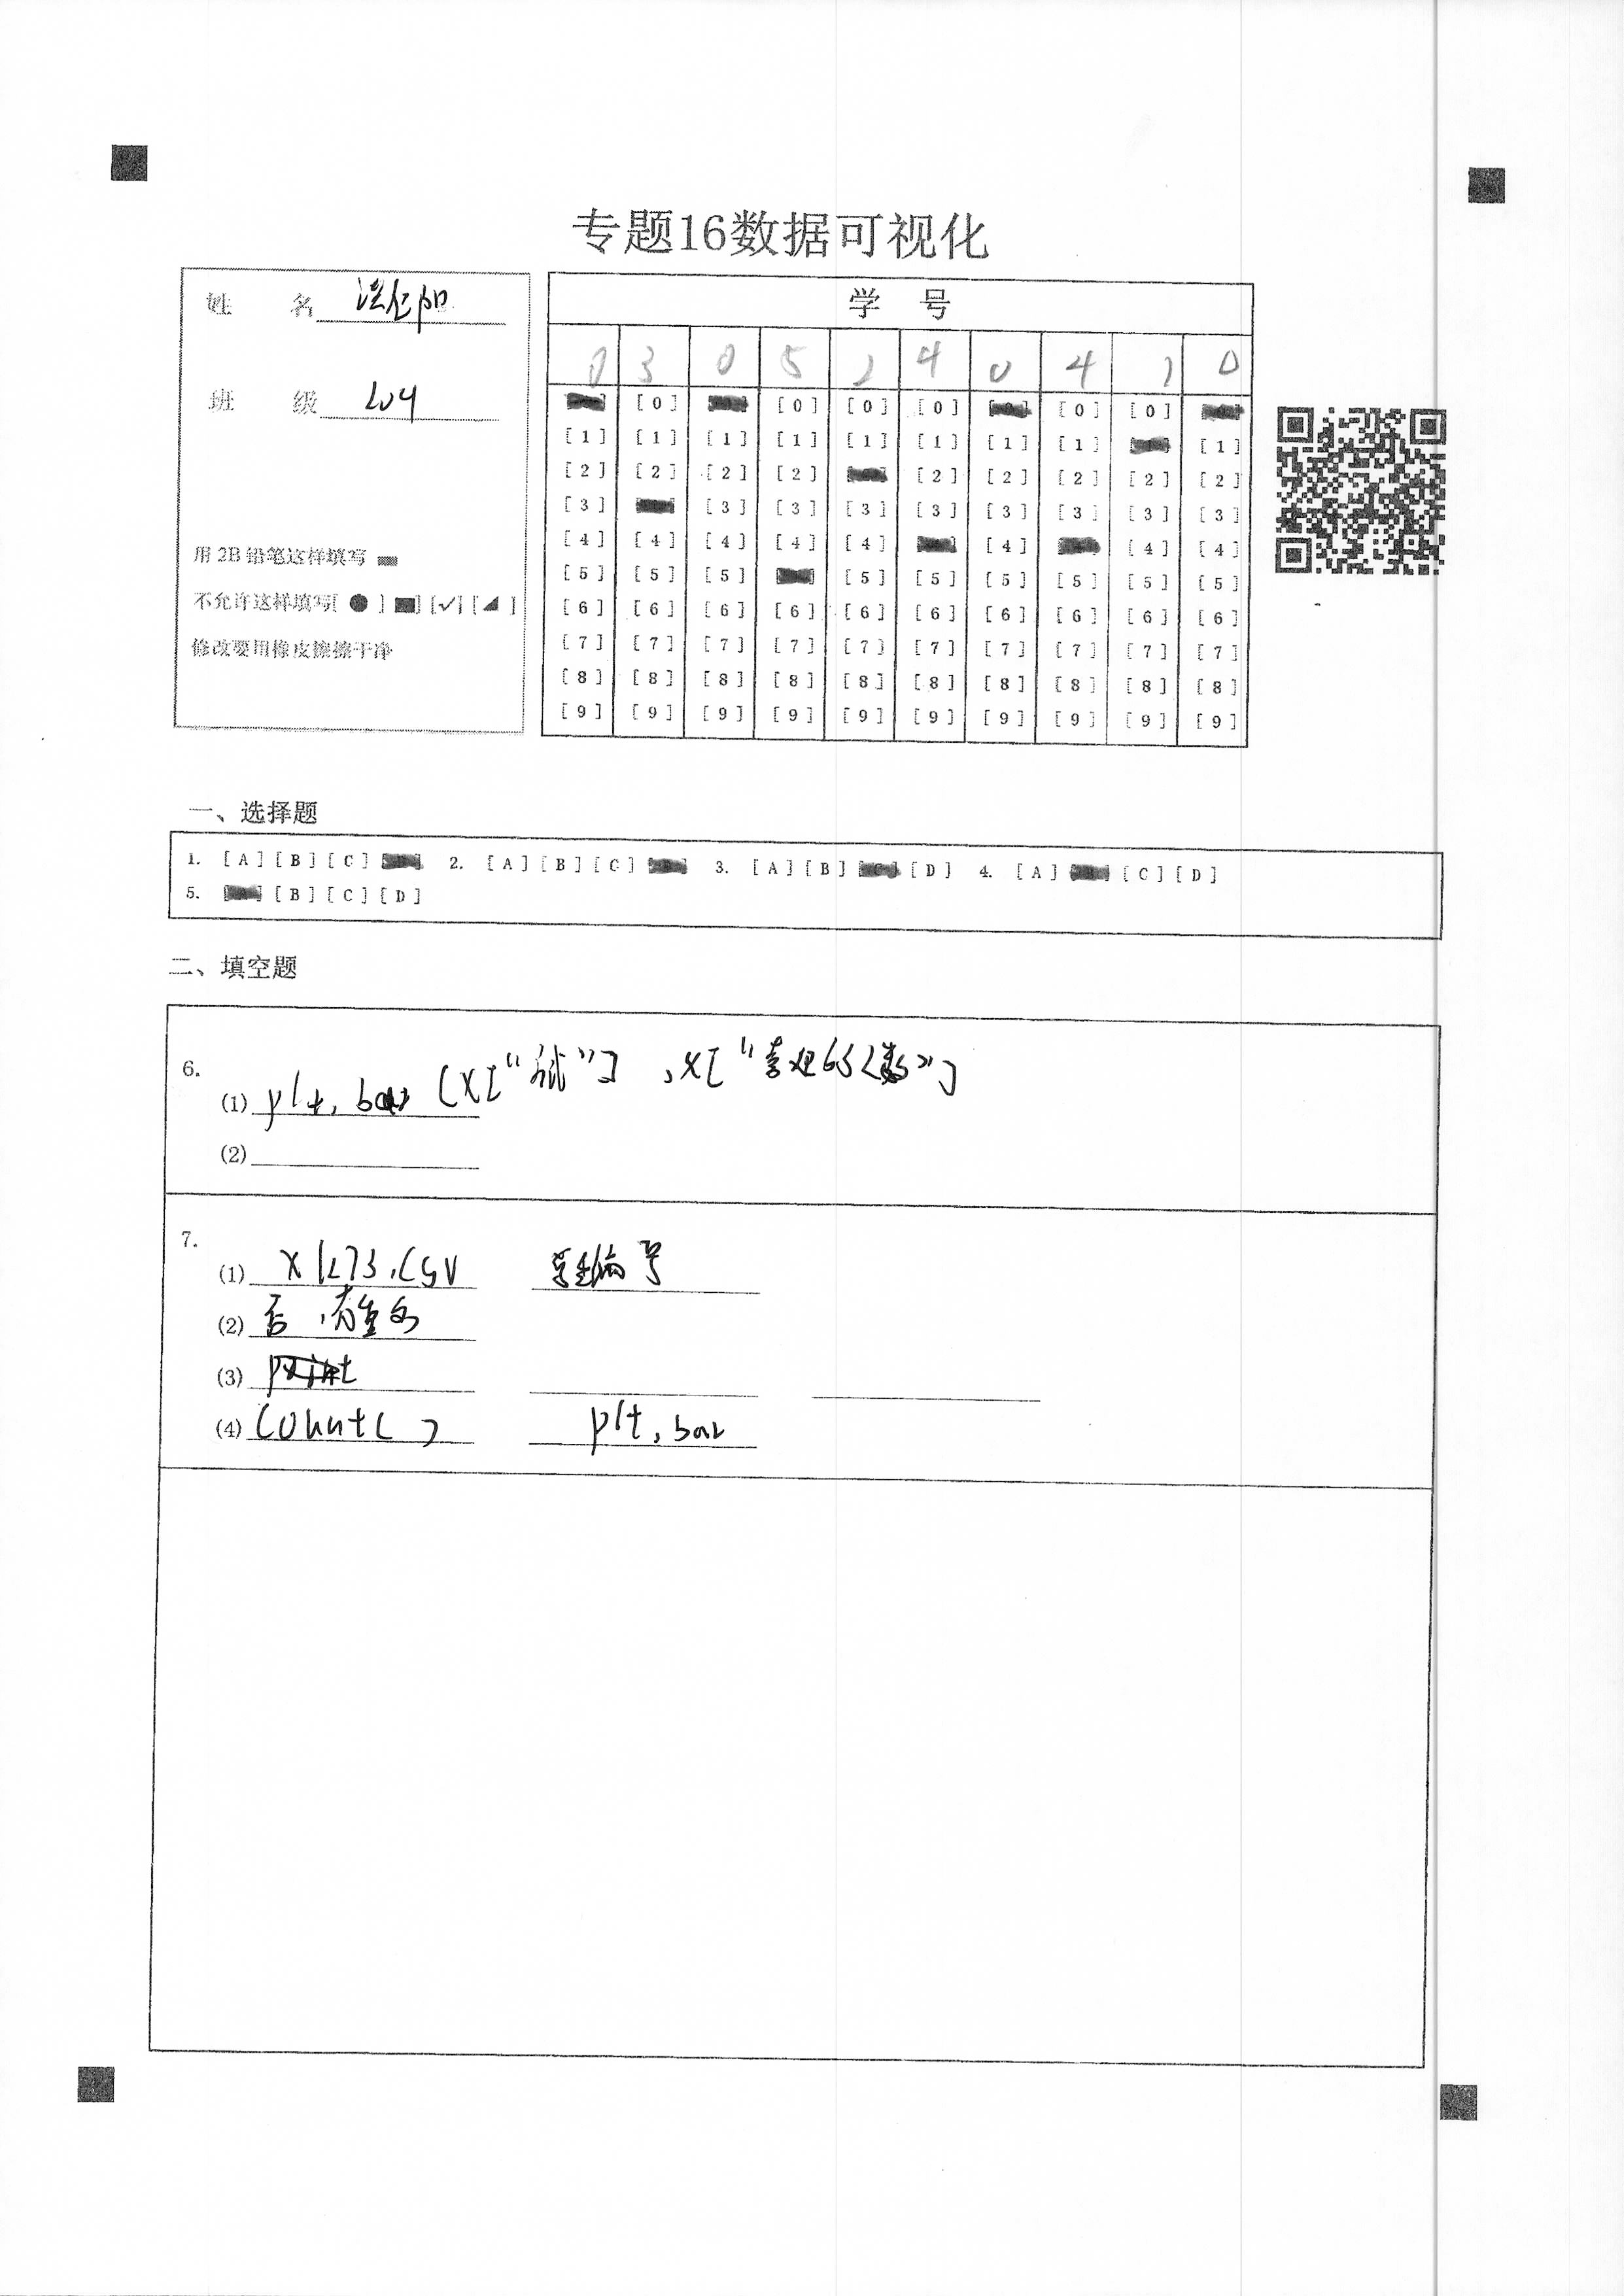 专题16数据可视化
姓 名
班 级 204
用 2B 铅笔这样填写
不允许这样填写[ ● ] [■] [✓] [◢ ]
修改要用橡皮擦擦干净
学 号
0 3 0 5 2 4 0 4 1 0
[0] [0] [0] [0] [0] [0]
[1] [1] [1] [1] [1] [1] [1] [1] [1]
[2] [2] [2] [2] [2] [2] [2] [2] [2]
[3] [3] [3] [3] [3] [3] [3] [3] [3]
[4] [4] [4] [4] [4] [4] [4] [4]
[5] [5] [5] [5] [5] [5] [5] [5] [5]
[6] [6] [6] [6] [6] [6] [6] [6] [6] [6]
[7] [7] [7] [7] [7] [7] [7] [7] [7] [7]
[8] [8] [8] [8] [8] [8] [8] [8] [8] [8]
[9] [9] [9] [9] [9] [9] [9] [9] [9] [9]
一、选择题
1. [A] [B] [C] 2. [A] [B] [C] 3. [A] [B] [D] 4. [A] [C] [D]
5. [B] [C] [D]
二、填空题
6.
(1) plt.bar (x[" "], x[" "]
(2)
7.
(1) xk73.csv 学生编号
(2) 否,有重名
(3)
(4) count() plt.bar